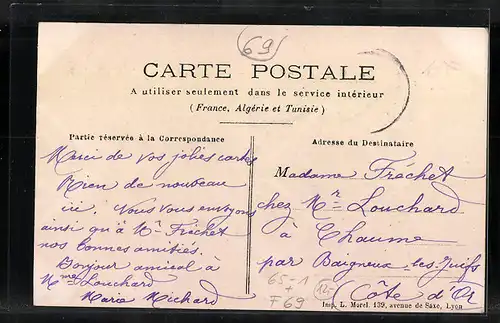 69
CARTE POSTALE
A utiliser seulement dans le service intérieur
(France, Algérie et Tunisie)
Partie réservée à la Correspondance
Merci de vos jolies cartes
Rien de nouveau
ici. Nous vous envoyons
ainsi qu'à Mr Fréchet
nos bonnes amitiés.
Bonjour amical à
Mme Louchard
Marie Richard
Adresse du Destinataire
Madame Fréchet
chez Mr Louchard
à Chaume
par Baigneux-les-Juifs
(Côte d'Or)
65-1
+
F69
12-
Imp. L. Morel. 139, avenue de Saxe, Lyon